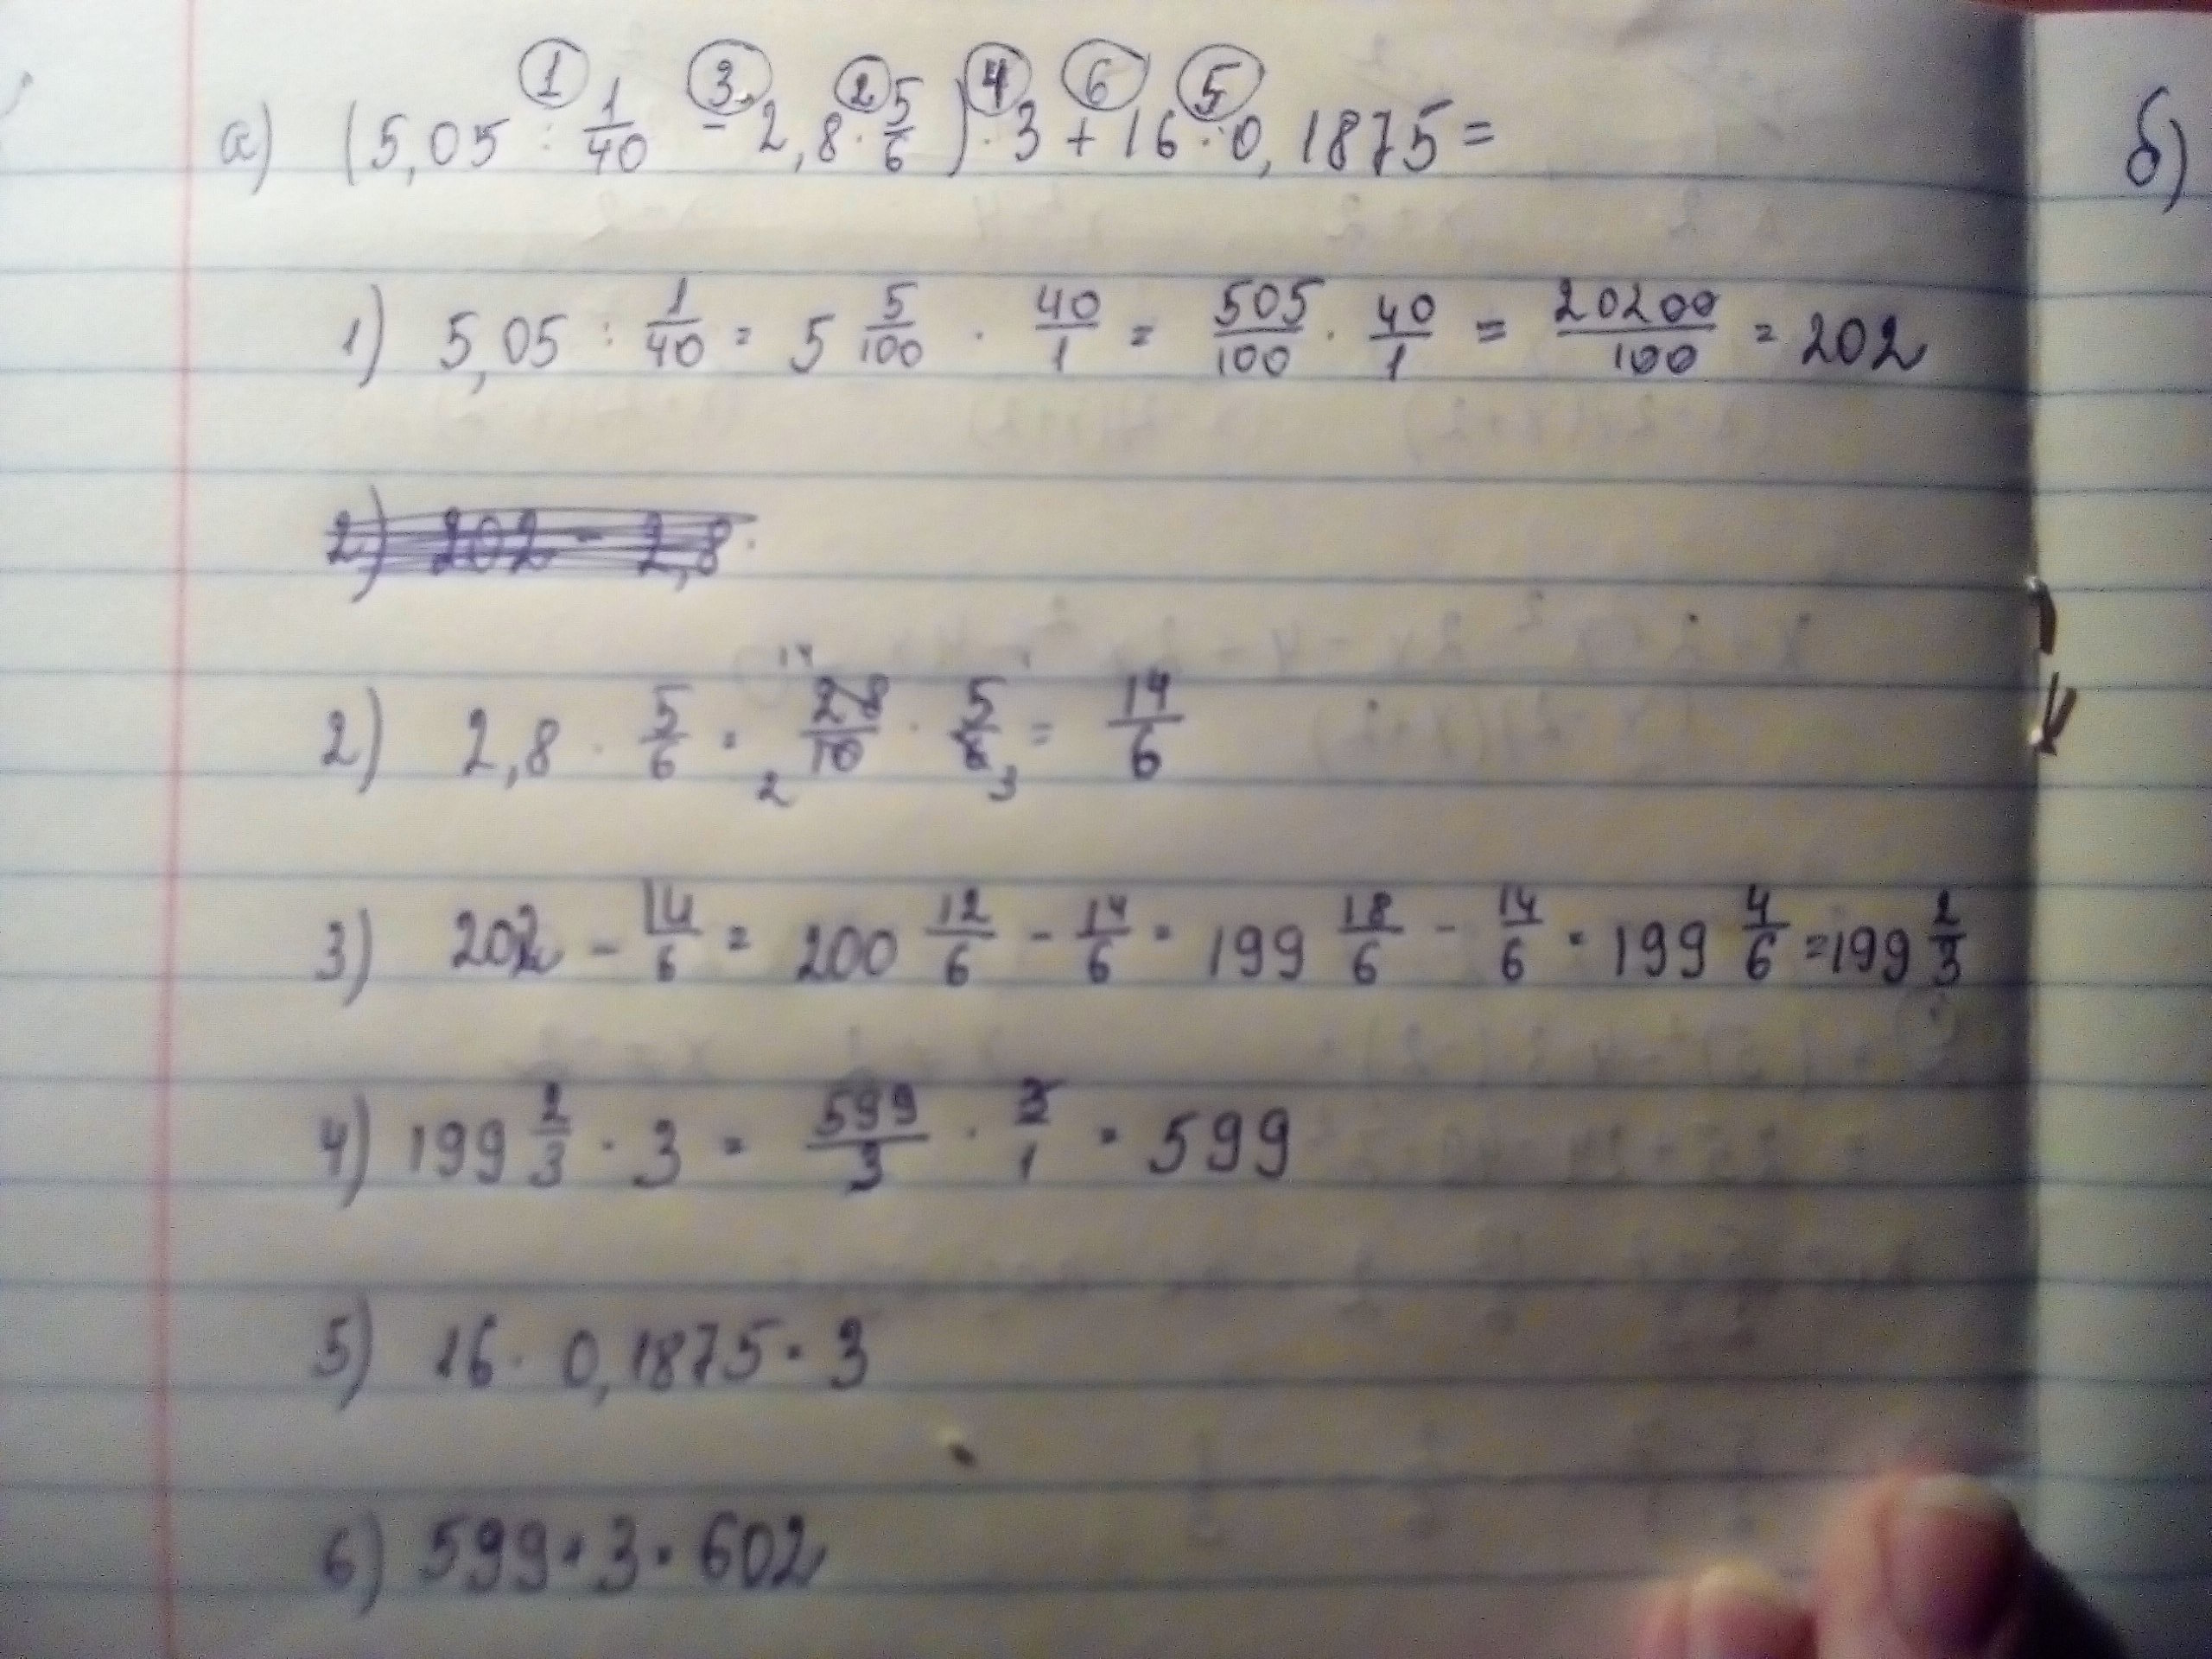 ① ③ ② ④ ⑥ ⑤
а) (5,05 : 1/40 - 2,8 · 5/6) · 3 + 16 · 0,1875 =
б)
1) 5,05 : 1/40 = 5 5/100 · 40/1 = 505/100 · 40/1 = 20200/100 = 202
2) 202 - 2,8
2) 2,8 · 5/6 = 28/10 · 5/6 = 14/6
14 2 3
3) 202 - 14/6 = 200 12/6 - 14/6 = 199 18/6 - 14/6 = 199 4/6 = 199 2/3
4) 199 2/3 · 3 = 599/3 · 3/1 = 599
5) 16 · 0,1875 = 3
6) 599 + 3 = 602